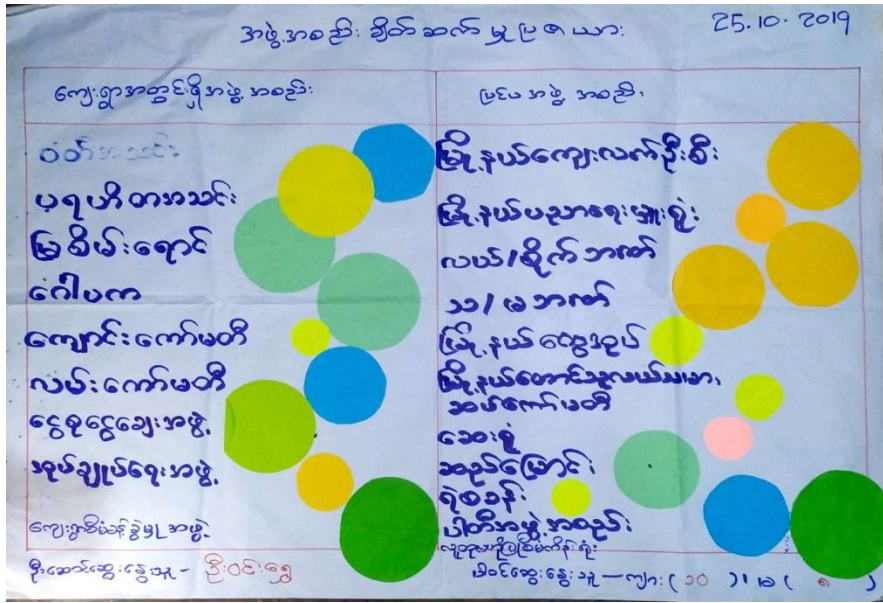 အဖွဲ့အစည်းချိတ်ဆက်မှုပြဇယား
25.10.2019
ကျေးရွာအတွင်းရှိအဖွဲ့အစည်း
ပြင်ပအဖွဲ့အစည်း
ဝတ်အသင်း
ပရဟိတအသင်း
မြစိမ်းရောင်
ဂေါပက
ကျောင်းကော်မတီ
လမ်းကော်မတီ
ငွေစုငွေချေးအဖွဲ့
အုပ်ချုပ်ရေးအဖွဲ့
ကျေးရွာစီမံခန့်ခွဲမှုအဖွဲ့
မြို့နယ်ကျေးလက်ဦးစီး
မြို့နယ်ပညာရေးမှူးရုံး
လယ်/စိုက်ဘဏ်
သ/မဘဏ်
မြို့နယ်ထွေအုပ်
မြို့နယ်တောင်သူလယ်သမား
ဆပ်ကော်မတီ
ဆေးရုံ
ဆည်မြောင်း
ရဲစခန်း
ပါတီအဖွဲ့အစည်း
ဦးဆောင်ဆွေးနွေးသူ - ဦးဝင်းရွှေ
ပါဝင်ဆွေးနွေးသူ — ကျား (၁၀) ၊ မ (၈)